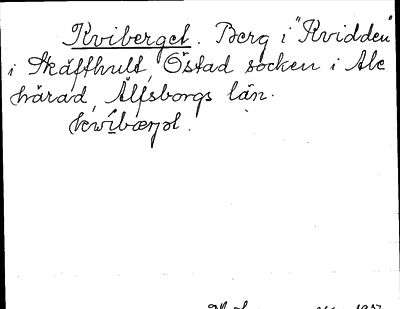 Kviberget. Berg i "Kvidden"
i Skäffhult, Östad socken i Ale
härad, Älfsborgs län.